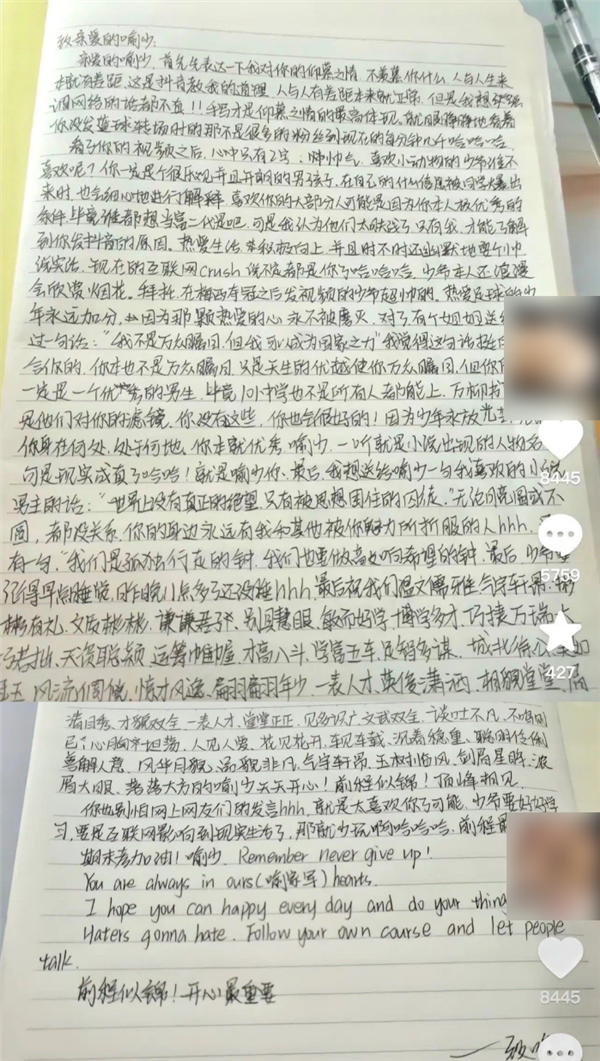 致亲爱的喻少:
亲爱的喻少,首先先表达一下我对你的仰慕之情,不羡慕你什么,人与人生来
本就有差距,这是抖音教我的道理,人与人有差距本来就正常,但是我想
谓网络的话都不真!!手写才是仰慕之情的最高体现,就
你没发篮球转场时的那不是很多的粉丝到现在的每分钟几千哈哈哈,
看了你的视频之后,心中只有2字:帅帅气,喜欢小动物的少爷谁不
喜欢呢?你一定是个很乐观并且开朗的男孩子,在自己的什么信息被同学爆出
来时,也会细心地进行解释,喜欢你的大部分人可能是因为你本人极优秀的
条件,毕竟谁都想当富二代是吧,可是我认为他们太肤浅了,只有我,才能了解
到你发抖音的原因,热爱生活,积极向上,并且时不时还幽默地耍个小
诚实活,现在的互联网crush说不定都是你了哈哈哈,少爷本人还浪漫
会欣赏烟花,拜托,在梅西夺冠之后发视频的少爷超帅的,热爱足球的少
年永远加分,因为那颗热爱的心永不被磨灭,对了有个姐姐送
过一句话:“我不是万众瞩目,但我可以成为国家之力”我觉得这句话挺
合你的,你本也不是万众瞩目,只是天生的优越使你万众瞩目,但你
一定是一个优秀的男生,毕竟101中学也不是所有人都能上,万柳书
是他们对你的滤镜,你没有这些,你也会很好的!因为少年永放光芒,
你身在何处,处于何地,你本就优秀,喻少,一听就是小说出现的人物名
句是现实成真了哈哈!就是喻少你,最后,我想送给喻少一句我喜欢的小说
男主的话:“世界上没有真正的绝望,只有被思想困住的囚徒,”无论月亮圆或不
圆,都没关系,你的身边永远有我和其他被你魅力所折服的人hhh,
有一句,“我们是孤独行走的钟,我们也要做高处响希望的钟,最后,少爷
记得早点睡觉,昨晚11点多了还没睡hhh,最后祝我们温文儒雅,气宇轩昂,
彬彬有礼,文质彬彬,谦谦君子,别具慧眼,敏而好学,博学多才,巧捷万端,
巧若拙,天资聪颖,运筹帷幄,才高八斗,学富五车,足智多谋,城北徐公,
玉,风流倜傥,惊才风逸,翩翩年少,一表人才,英俊潇洒,相貌堂堂,眉
清目秀,才貌双全,一表人才,堂堂正正,见多识广,文武双全,谈吐不凡,不
己,心胸坦荡,人见人爱,花见花开,车见车载,沉着稳重,聪明伶俐
善解人意,风华月貌,品貌非凡,气宇轩昂,玉树临风,剑眉星眸,浓
眉大眼,落落大方的喻少天天开心!前程似锦!顶峰相见,
你也别怕网上网友们的发言hhh,就是太喜欢你了可能,少爷要好好学
习,要是互联网影响到现实生活了,那就少玩啊哈哈哈,前程
期末考加油!喻少,Remember never give up!
You are always in ours(喻家军) hearts.
I hope you can happy every day and do your thing
Haters gonna hate. Follow your own course and let people
talk.
前程似锦!开心最重要
8445
5759
427
8445